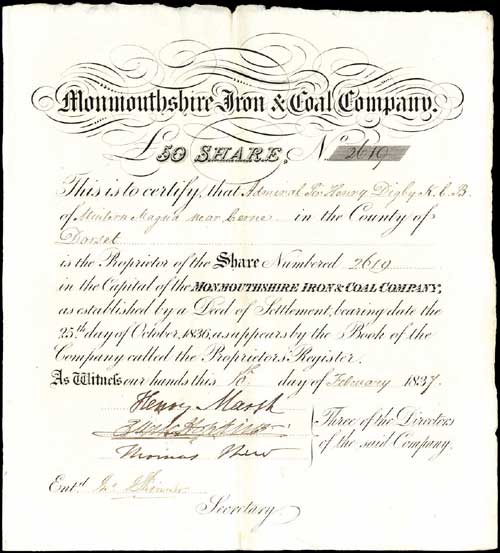 Monmouthshire Iron & Coal Company.
£50 SHARE, No 2619
This is to certify, that Admiral Sir Henry Digby K.C.B.
of Mintern Magna near Cerne in the County of
Dorset
is the Proprietor of the Share Numbered 2619
in the Capital of the MONMOUTHSHIRE IRON & COAL COMPANY,
as established by a Deed of Settlement, bearing date the
25th day of October, 1836, as appears by the Book of the
Company called the Proprietors Register.
As Witness our hands this day of February 1837.
Henry Marsh
Three of the Directors
of the said Company.
Thomas
Entd.
Secretary.